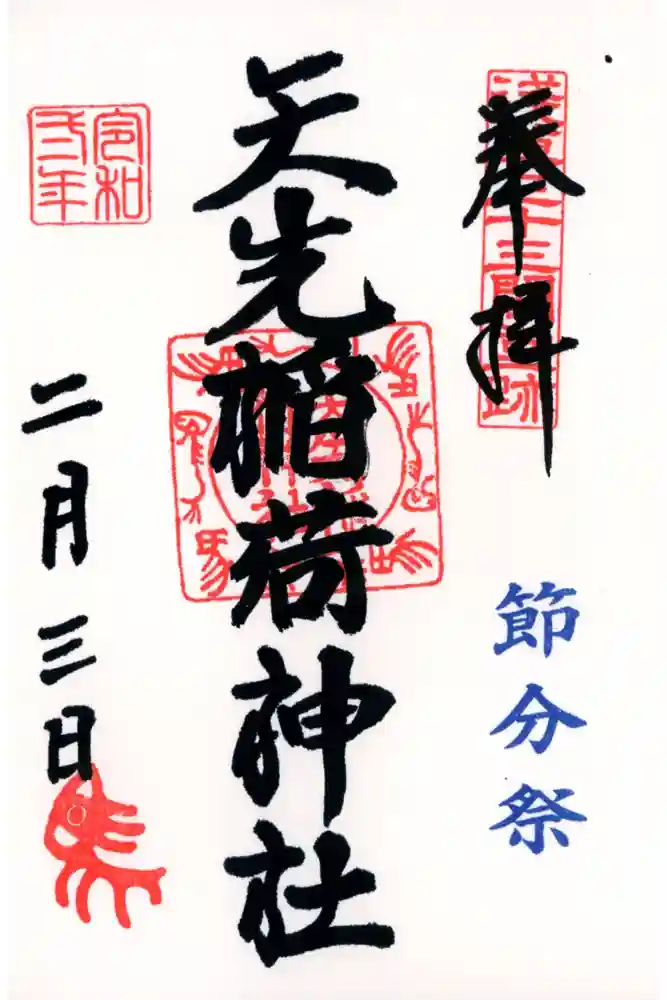 奉拝
節分祭
矢先稲荷神社
令和
弐年
二月三日